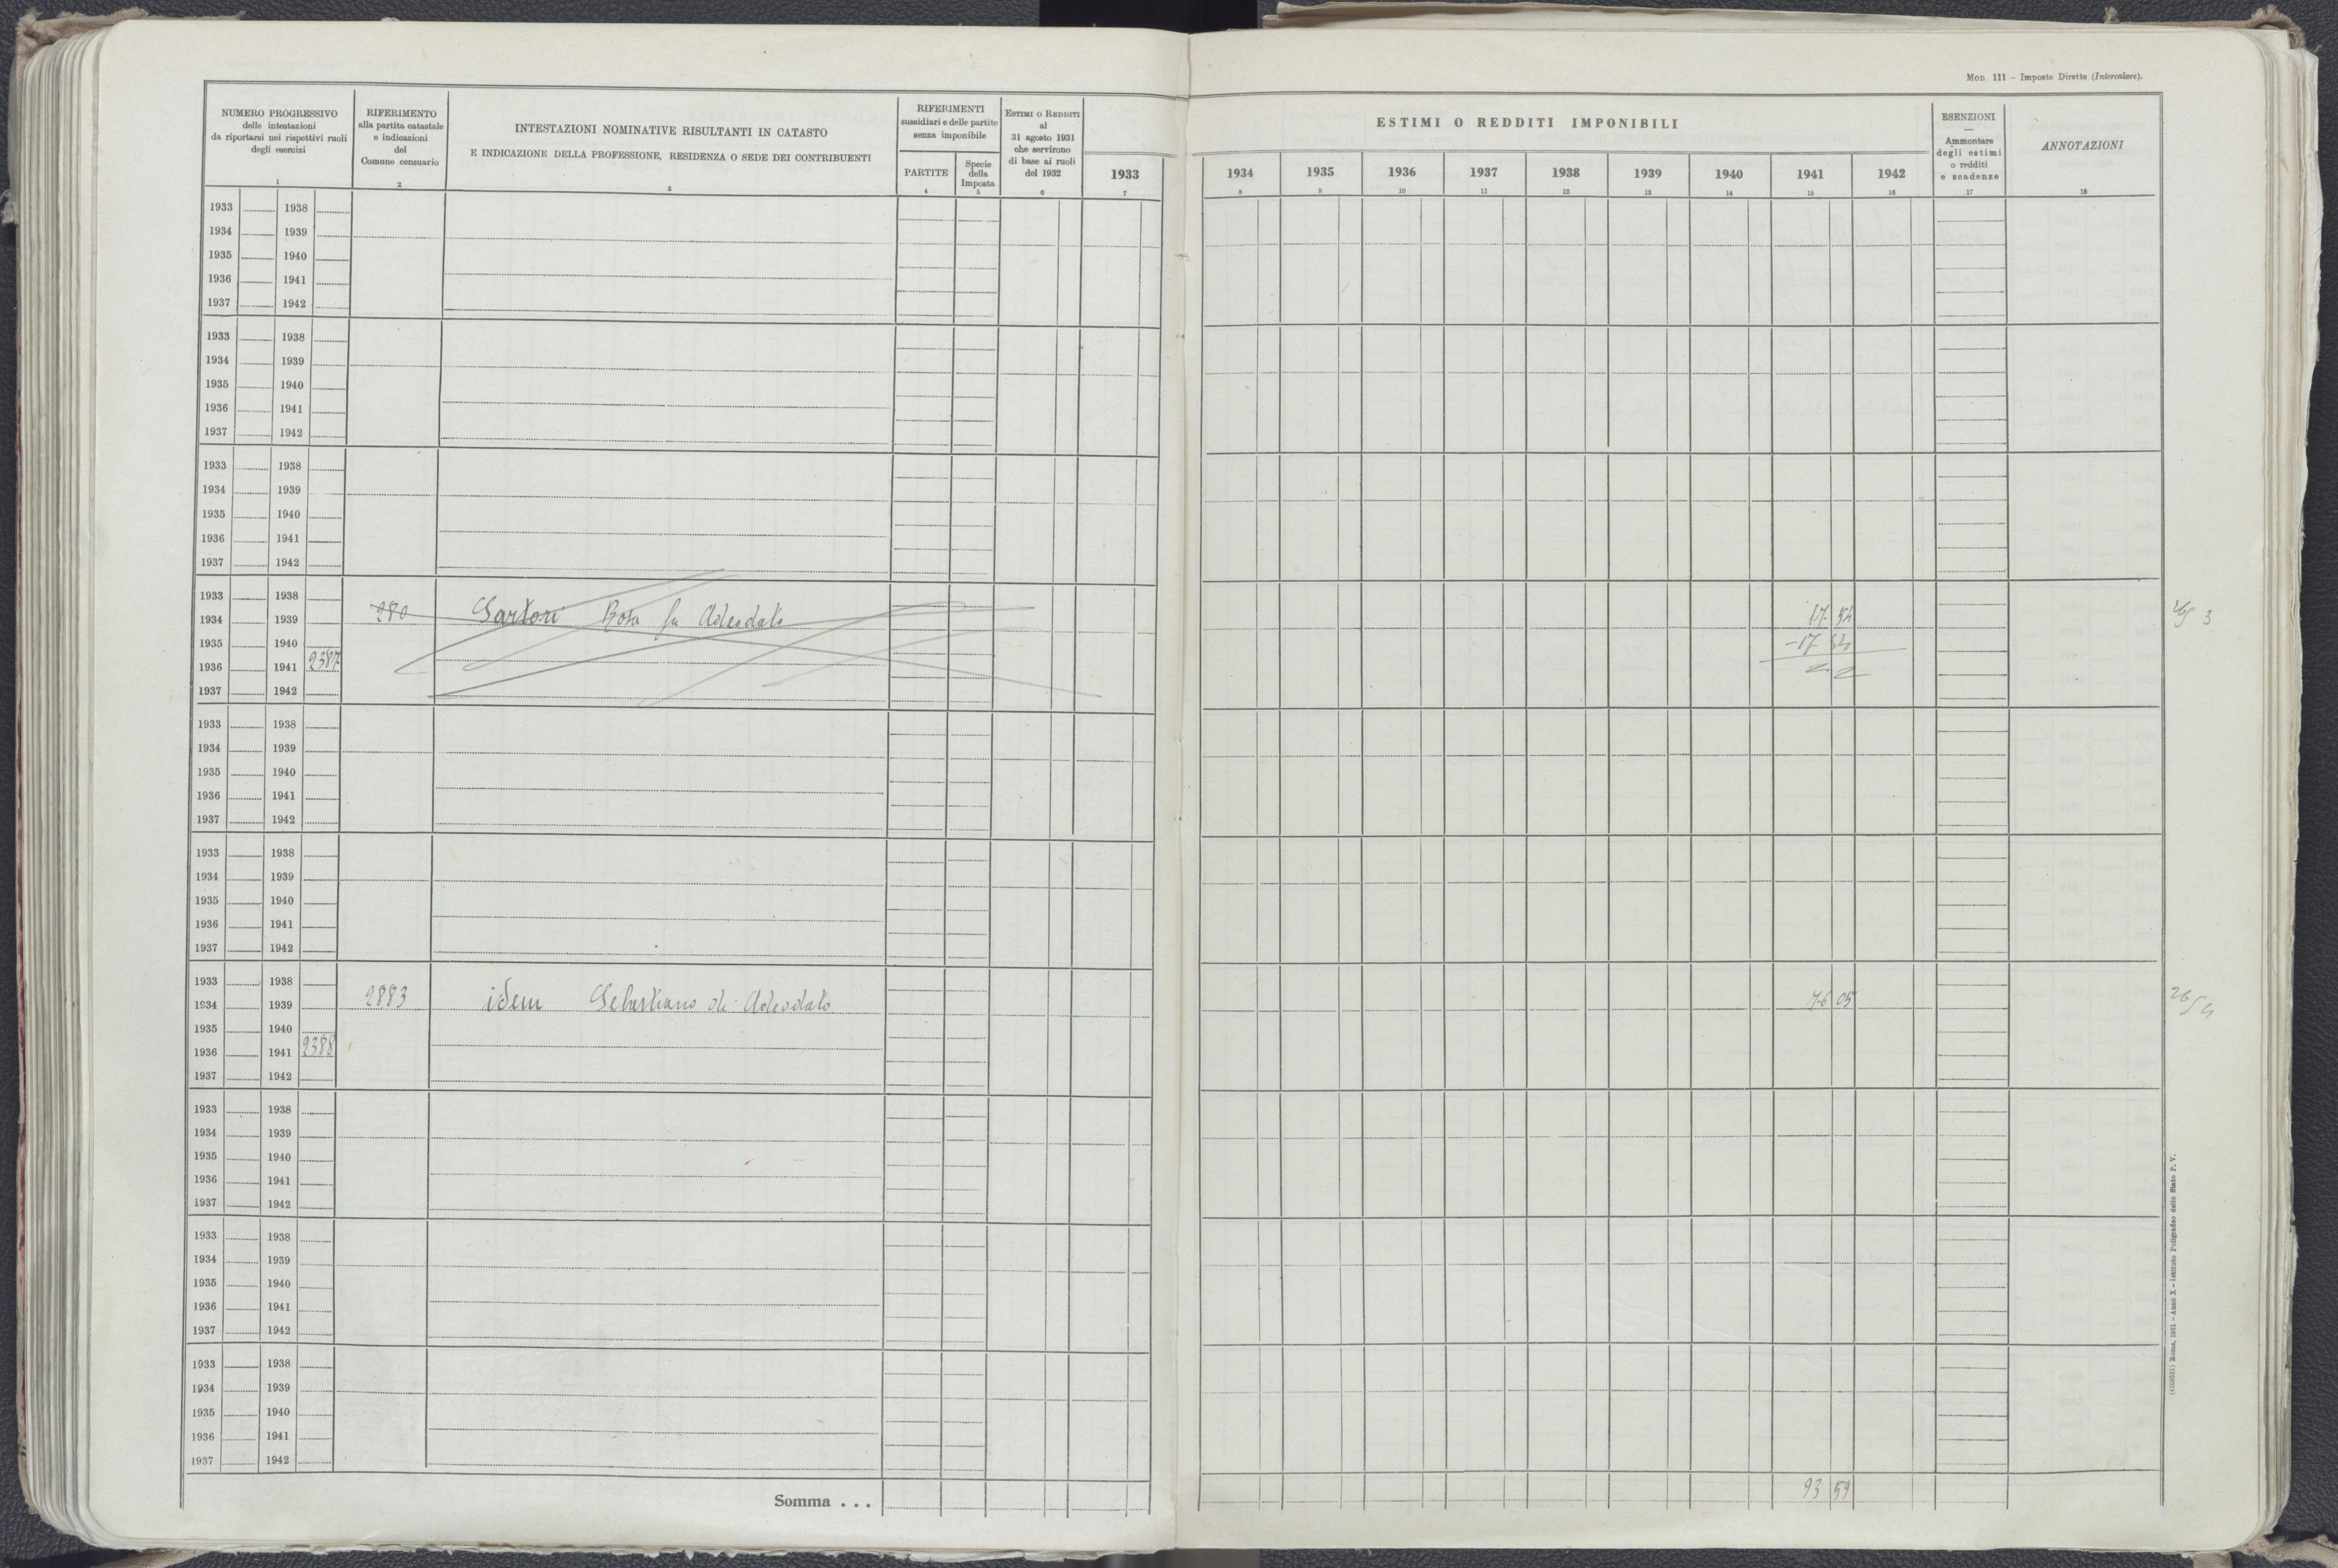 MOD. 111 - Imposte Dirette (Intercalare).
NUMERO PROGRESSIVO
delle intestazioni
da riportarsi nei rispettivi ruoli
degli esercizi
1
RIFERIMENTO
alla partita catastale
e indicazioni
del
Comune censuario
2
INTESTAZIONI NOMINATIVE RISULTANTI IN CATASTO
E INDICAZIONE DELLA PROFESSIONE, RESIDENZA O SEDE DEI CONTRIBUENTI
3
RIFERIMENTI
sussidiari e delle partite
senza imponibile
PARTITE
4
Specie
della
Imposta
5
ESTIMI O REDDITI
al
31 agosto 1931
che servirono
di base ai ruoli
del 1932
6
1933
7
ESTIMI O REDDITI IMPONIBILI
1934 1935 1936 1937 1938 1939 1940 1941 1942
8 9 10 11 12 13 14 15 16
ESENZIONI
—
Ammontare
degli estimi
o redditi
e scadenze
17
ANNOTAZIONI
18
1933 1938
1934 1939
1935 1940
1936 1941
1937 1942
1933 1938
1934 1939
1935 1940
1936 1941
1937 1942
1933 1938
1934 1939
1935 1940
1936 1941
1937 1942
1933 1938
1934 1939 280 Sartori Rosa fu Adeodato 17 54
1935 1940 -17 54
1936 1941 2387
1937 1942
1933 1938
1934 1939
1935 1940
1936 1941
1937 1942
1933 1938
1934 1939
1935 1940
1936 1941
1937 1942
1933 1938
1934 1939 2883 idem Sebastiano di Adeodato 76 05
1935 1940
1936 1941 2388
1937 1942
1933 1938
1934 1939
1935 1940
1936 1941
1937 1942
1933 1938
1934 1939
1935 1940
1936 1941
1937 1942
1933 1938
1934 1939
1935 1940
1936 1941
1937 1942
Somma . . . 93 59
(4100551) Roma, 1931 - Anno X - Istituto Poligrafico dello Stato P. V.